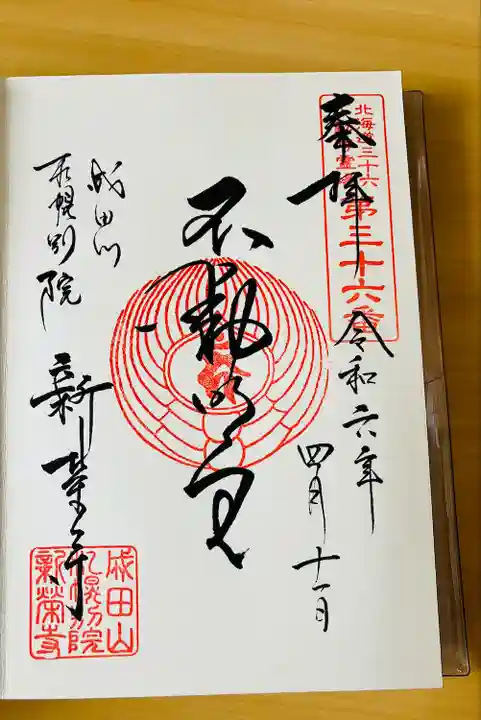 奉拝
北海道三十六
霊
第三十六番
令和六年
四月十一日
不動明王
成田山
札幌別院
新栄寺
成田山
札幌別院
新榮寺